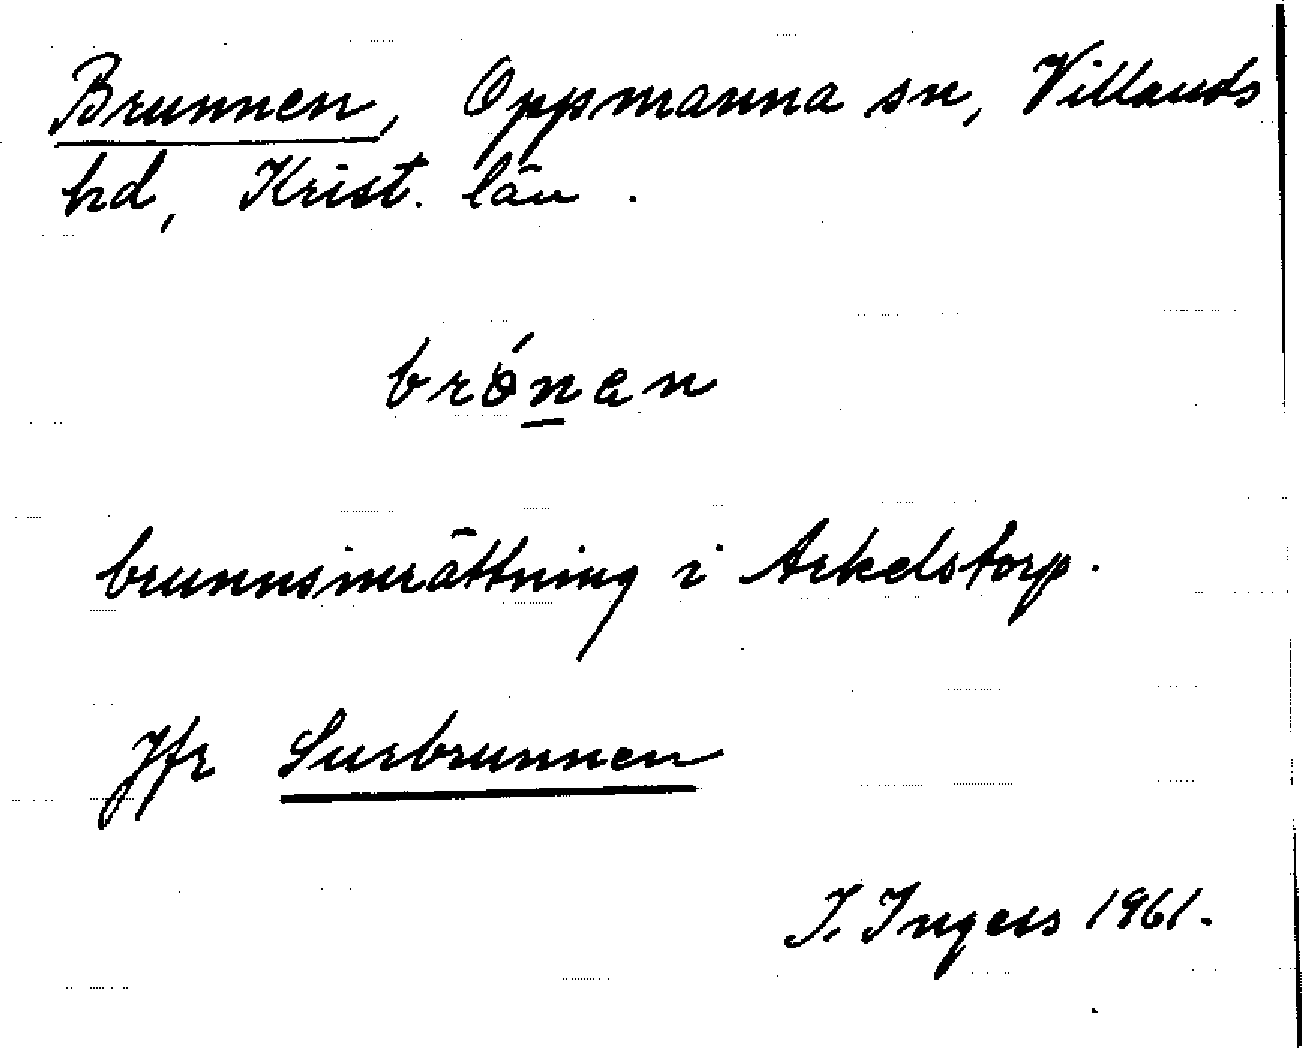 Brunnen, Oppmanna sn, Villands
hd, Krist. län.
brónan
brunnsinrättning i Arkelstorp.
Jfr Surbrunnen
I. Ingers 1961.